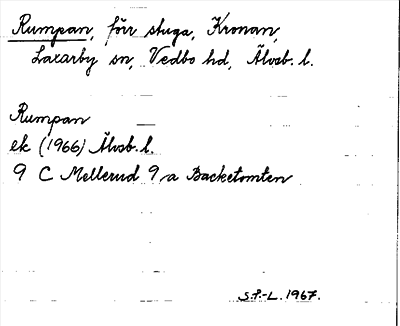 Rumpan, förr stuga, Kronan,
Laxarby sn, Vedbo hd, Älvsb. l.
Rumpan
ek (1966) Älvsb. l.
9 C Mellerud 9 a Backetomten
S.F.-L. 1967.